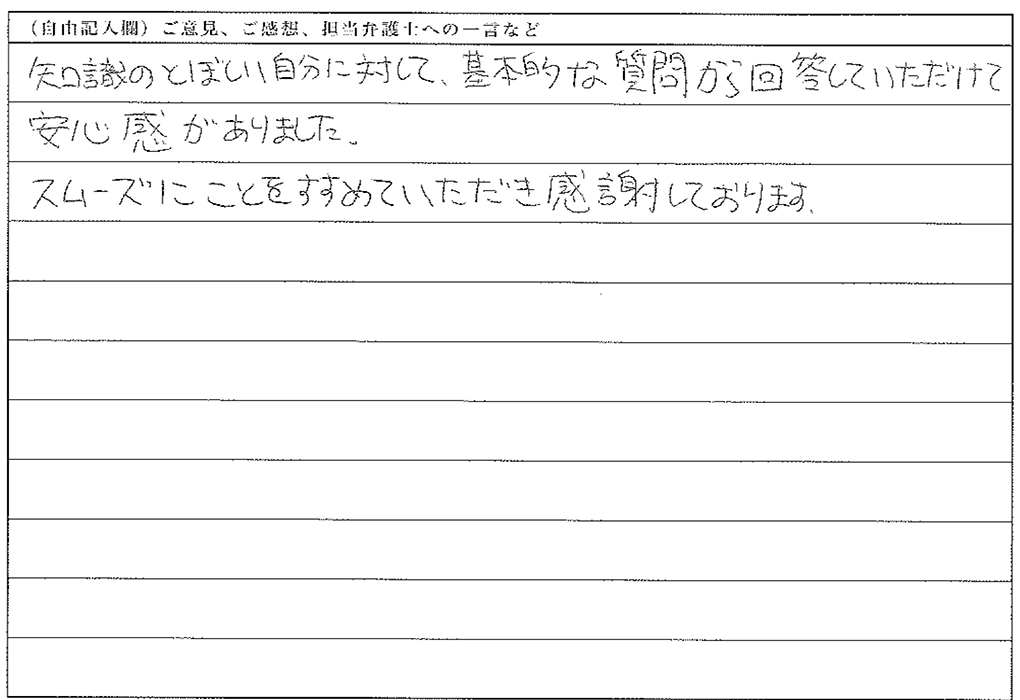 （自由記入欄）ご意見、ご感想、担当弁護士への一言など
知識のとぼしい自分に対して、基本的な質問から回答していただけて
安心感がありました。
スムーズにことをすすめていただき感謝しております。